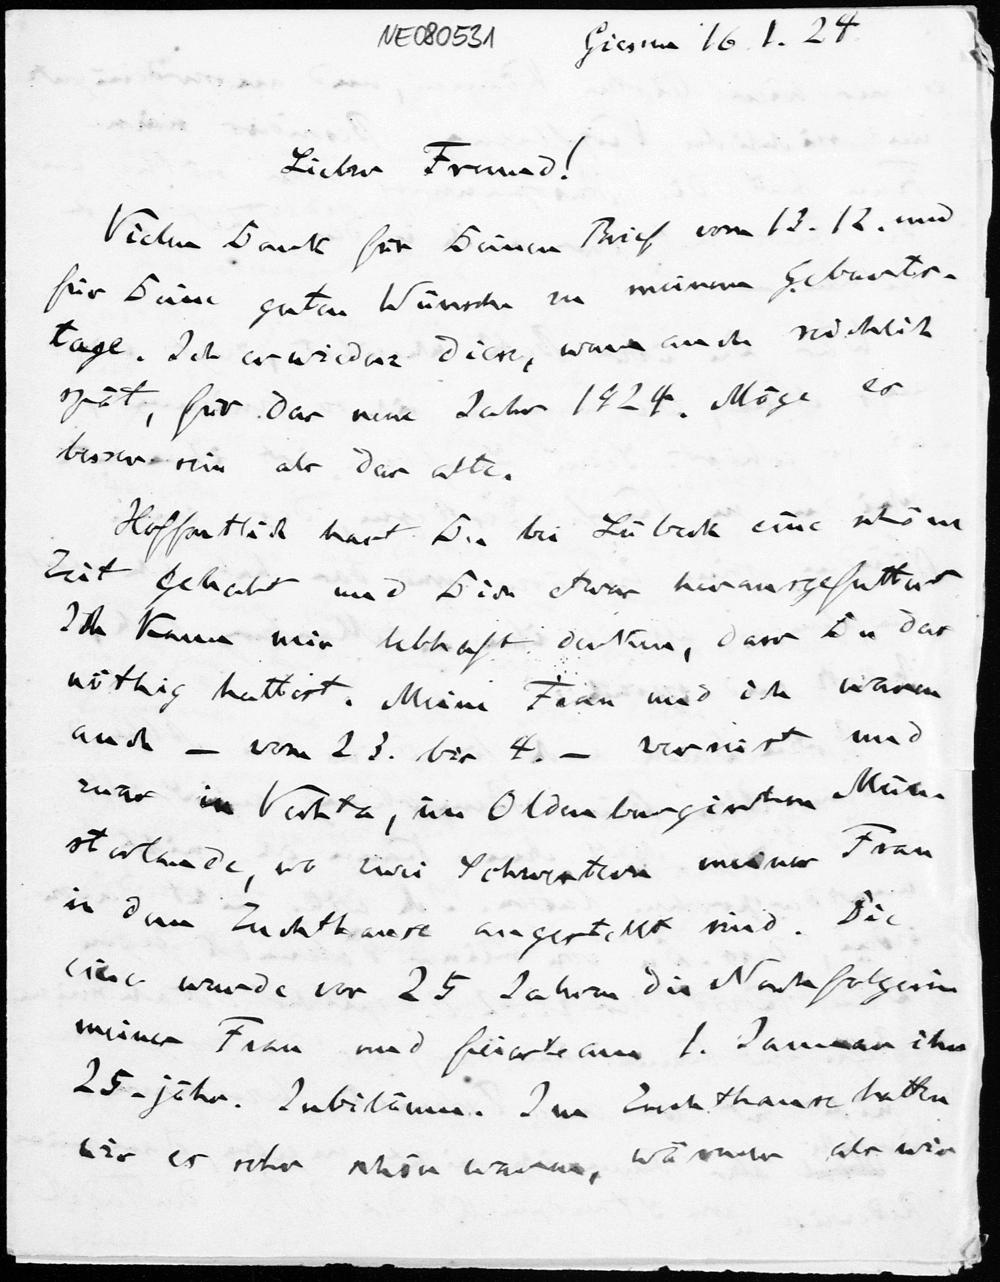 NE080531
Giessen 16.1.24
Lieber Freund!
Vielen Dank für Deinen Brief vom 13.12. und
für Deine guten Wünsche zu meinem Geburts-
tage. Ich erwiedere diese, wenn auch reichlich
spät, für das neue Jahr 1924. Möge es
besser sein als das alte.
Hoffentlich hast Du bei Lübeck eine schöne
Zeit gehabt und Dich etwas herausgefuttert
Ich kann mir lebhaft denken, dass Du das
nöthig hattest. Meine Frau und ich waren
auch – vom 23. bis 4. – verreist und
zwar in Vechta, im Oldenburgischen Mün-
sterlande, wo zwei Schwestern meiner Frau
in dem Zuchthause angestellt sind. Die
eine wurde vor 25 Jahren die Nachfolgerin
meiner Frau und feierte am 1. Januar ihr
25-jähr. Jubiläum. Im Zuchthause hatten
wir es sehr schön warm, wärmer als wir